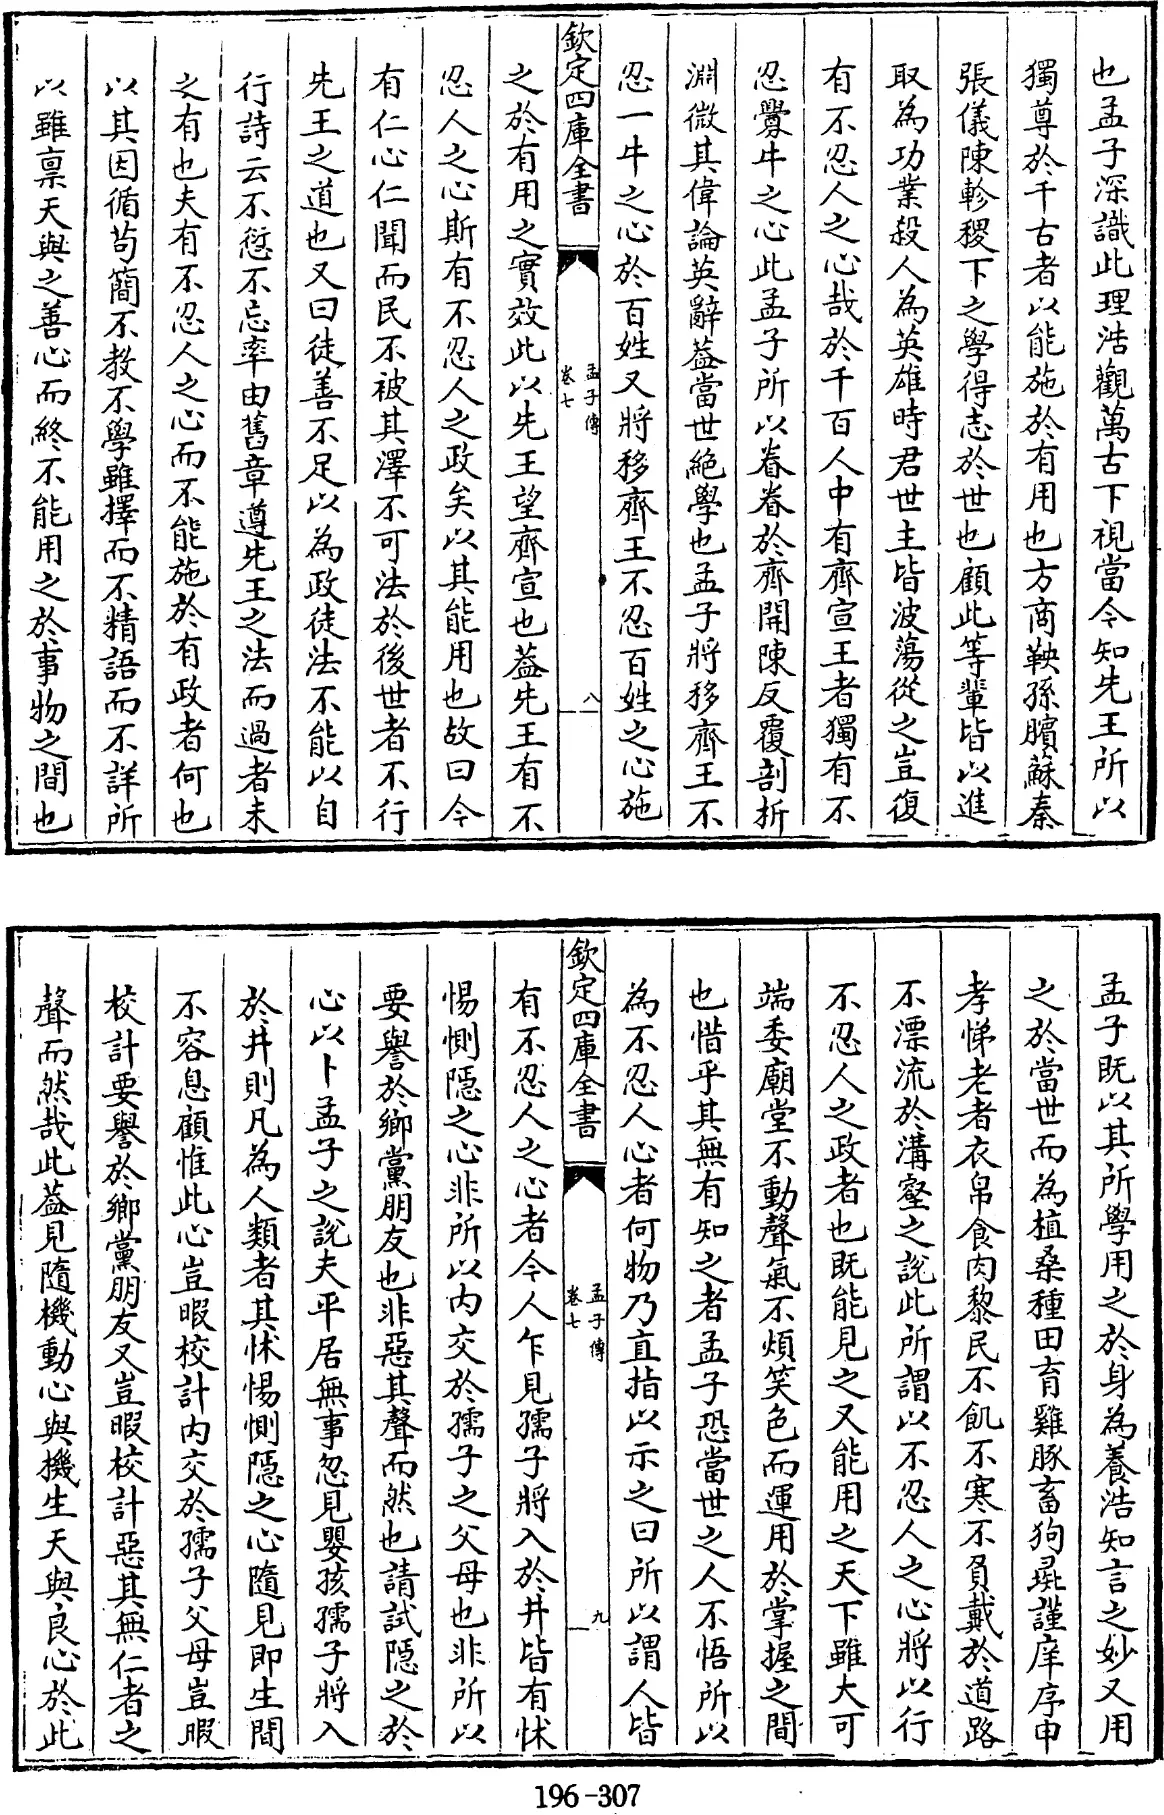 也孟子深識此理浩觀萬古下視當今知先王所以
獨尊於千古者以能施於有用也方商鞅孫臏蘇秦
張儀陳軫稷下之學得志於世也顧此等輩皆以進
取為功業殺人為英雄時君世主皆波蕩從之豈復
有不忍人之心哉於千百人中有齊宣王者獨有不
忍釁牛之心此孟子所以眷眷於齊開陳反覆剖析
淵微其偉論英辭葢當世絶學也孟子將移齊王不
忍一牛之心於百姓又將移齊王不忍百姓之心施
欽定四庫全書
孟子傳
卷七
八
之於有用之實效此以先王望齊宣也葢先王有不
忍人之心斯有不忍人之政矣以其能用也故曰今
有仁心仁聞而民不被其澤不可法於後世者不行
先王之道也又曰徒善不足以為政徒法不能以自
行詩云不愆不忘率由舊章遵先王之法而過者未
之有也夫有不忍人之心而不能施於有政者何也
以其因循苟簡不教不學雖擇而不精語而不詳所
以雖禀天與之善心而終不能用之於事物之間也
孟子既以其所學用之於身為養浩知言之妙又用
之於當世而為植桑種田育雞豚畜狗彘謹庠序申
孝悌老者衣帛食肉黎民不飢不寒不負戴於道路
不漂流於溝壑之說此所謂以不忍人之心將以行
不忍人之政者也既能見之又能用之天下雖大可
端委廟堂不動聲氣不煩笑色而運用於掌握之間
也惜乎其無有知之者孟子恐當世之人不悟所以
為不忍人心者何物乃直指以示之曰所以謂人皆
欽定四庫全書
孟子傳
卷七
九
有不忍人之心者今人乍見孺子將入於井皆有怵
惕惻隱之心非所以内交於孺子之父母也非所以
要譽於鄉黨朋友也非惡其聲而然也請試隱之於
心以卜孟子之說夫平居無事忽見嬰孩孺子將入
於井則凡為人類者其怵惕惻隱之心隨見即生間
不容息顧惟此心豈暇校計内交於孺子父母豈暇
校計要譽於鄉黨朋友又豈暇校計惡其無仁者之
聲而然哉此葢見隨機動心與機生天與良心於此
196-307